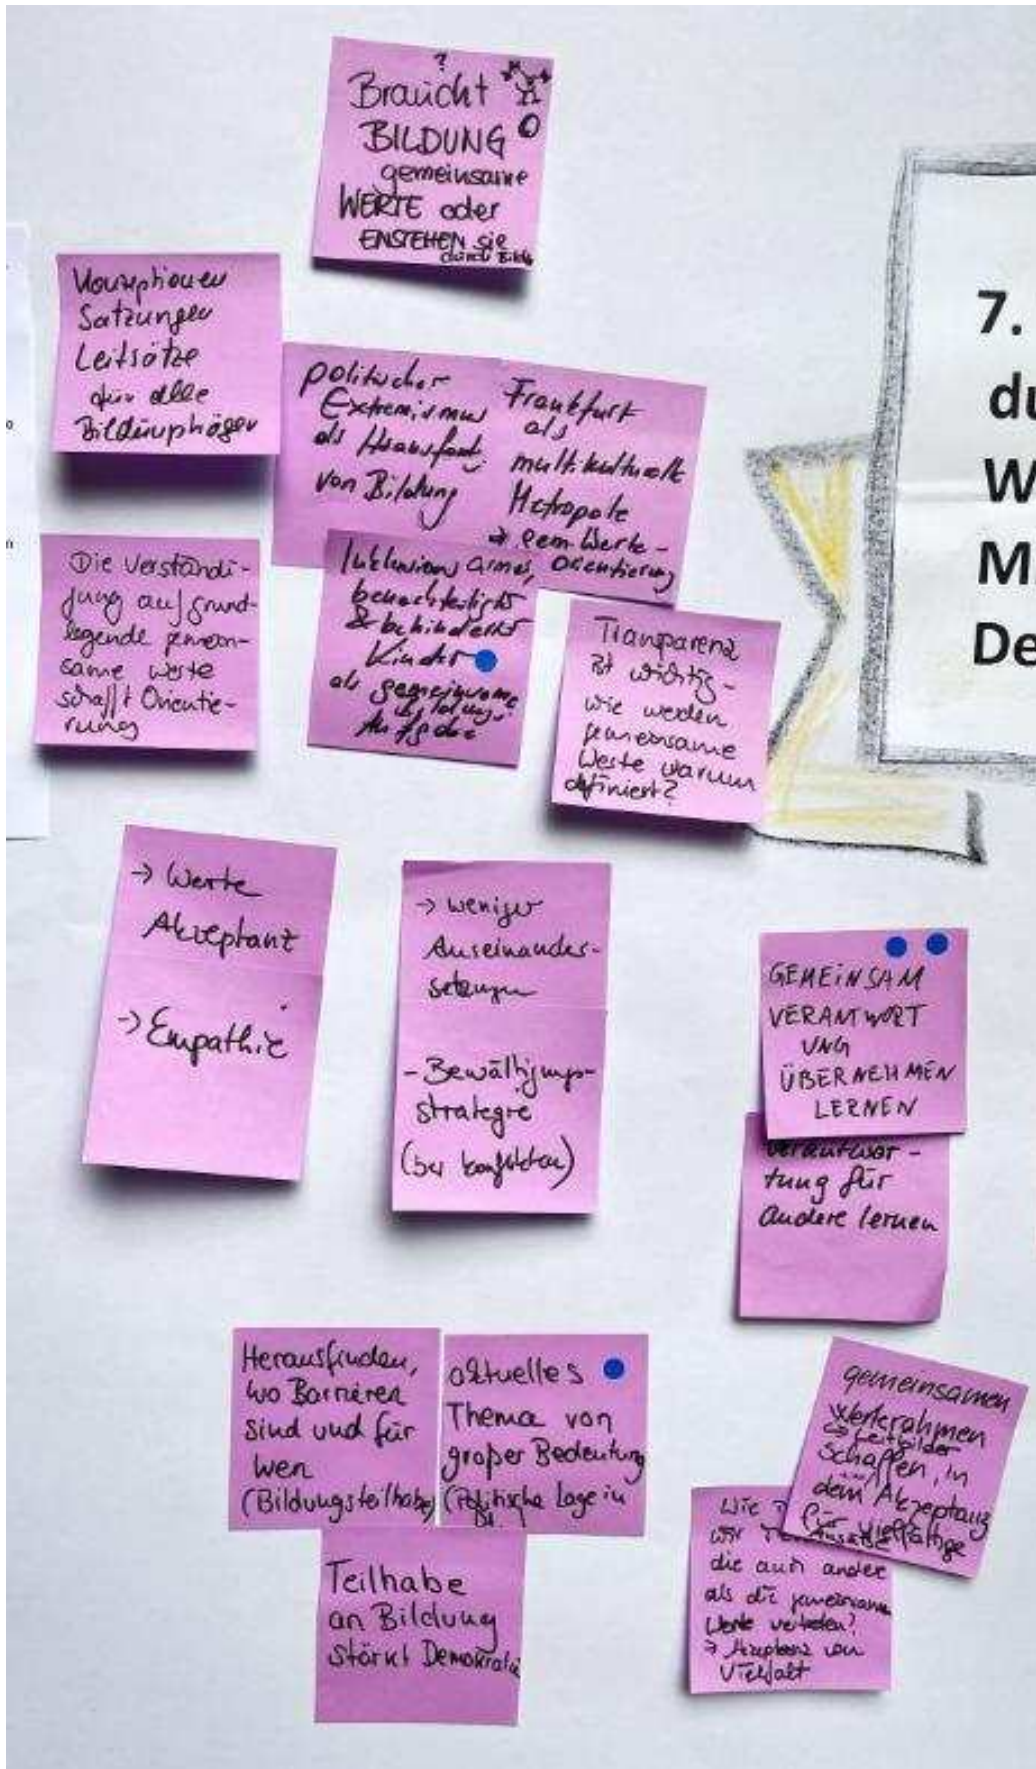 ?
Braucht
BILDUNG
gemeinsame
WERTE oder
ENSTEHEN sie
durch Bild
Konzeptionen
Satzungen
Leitsätze
für alle
Bildungsträger
politischer
Extremismus
als Herausford.
von Bildung
Frankfurt
als
multikulturelle
Metropole
→ gem. Werte-
orientierung
Die Verständi-
gung auf grund-
legende gemein-
same Werte
schafft Orientie-
rung
Inklusion armer,
benachteiligter
& behinderter
Kinder
als gemeinsame
Bildungs-
Aufgabe
Transparenz
ist wichtig -
wie werden
gemeinsame
Werte warum
definiert?
7.
du
W
M
De
→ Werte
Akzeptanz
→ Empathie
→ weniger
Auseinander-
setzungen
- Bewältigungs-
strategie
(bei Konflikten)
GEMEINSAM
VERANTWORT
UNG
ÜBERNEHMEN
LERNEN
Verantwor-
tung für
andere lernen
Herausfinden,
wo Barrieren
sind und für
wen
(Bildungsteilhabe)
aktuelles
Thema von
großer Bedeutung
(Politische Lage in
Teilhabe
an Bildung
stärkt Demokratie
gemeinsamen
Werterahmen
→ Leitbilder
schaffen, in
dem Akzeptanz
für vielfältige
Wie
wir
die auch andere
als die gemeinsamen
Werte vertreten?
→ Akzeptanz von
Vielfalt